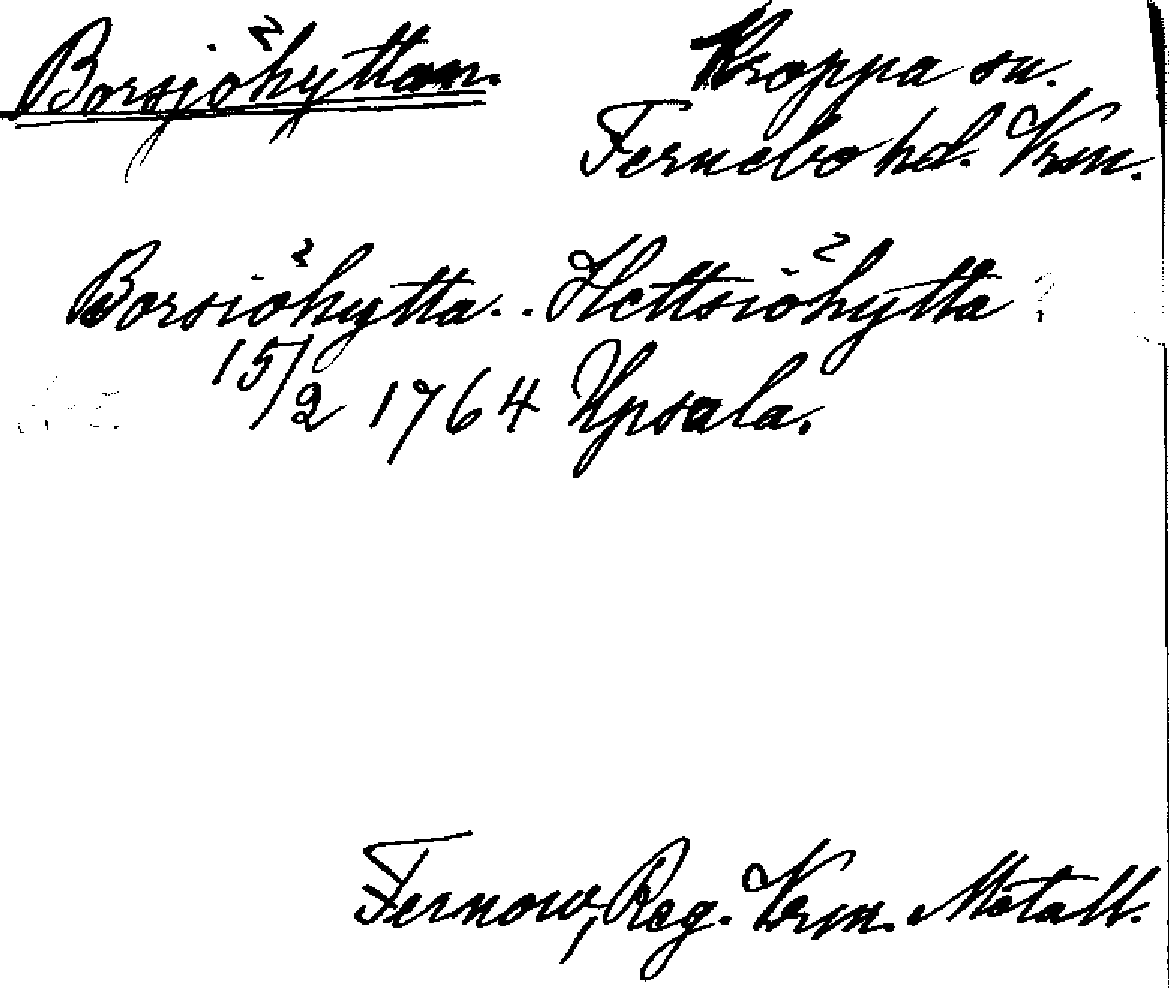 Borsjöhyttan. Kroppa sn.
Fernebo hd. Vrm.
Borsiöhytta. . Hettsiöhytta
15/2 1764 Upsala.
Fernow, Reg. Vrm. Metall.